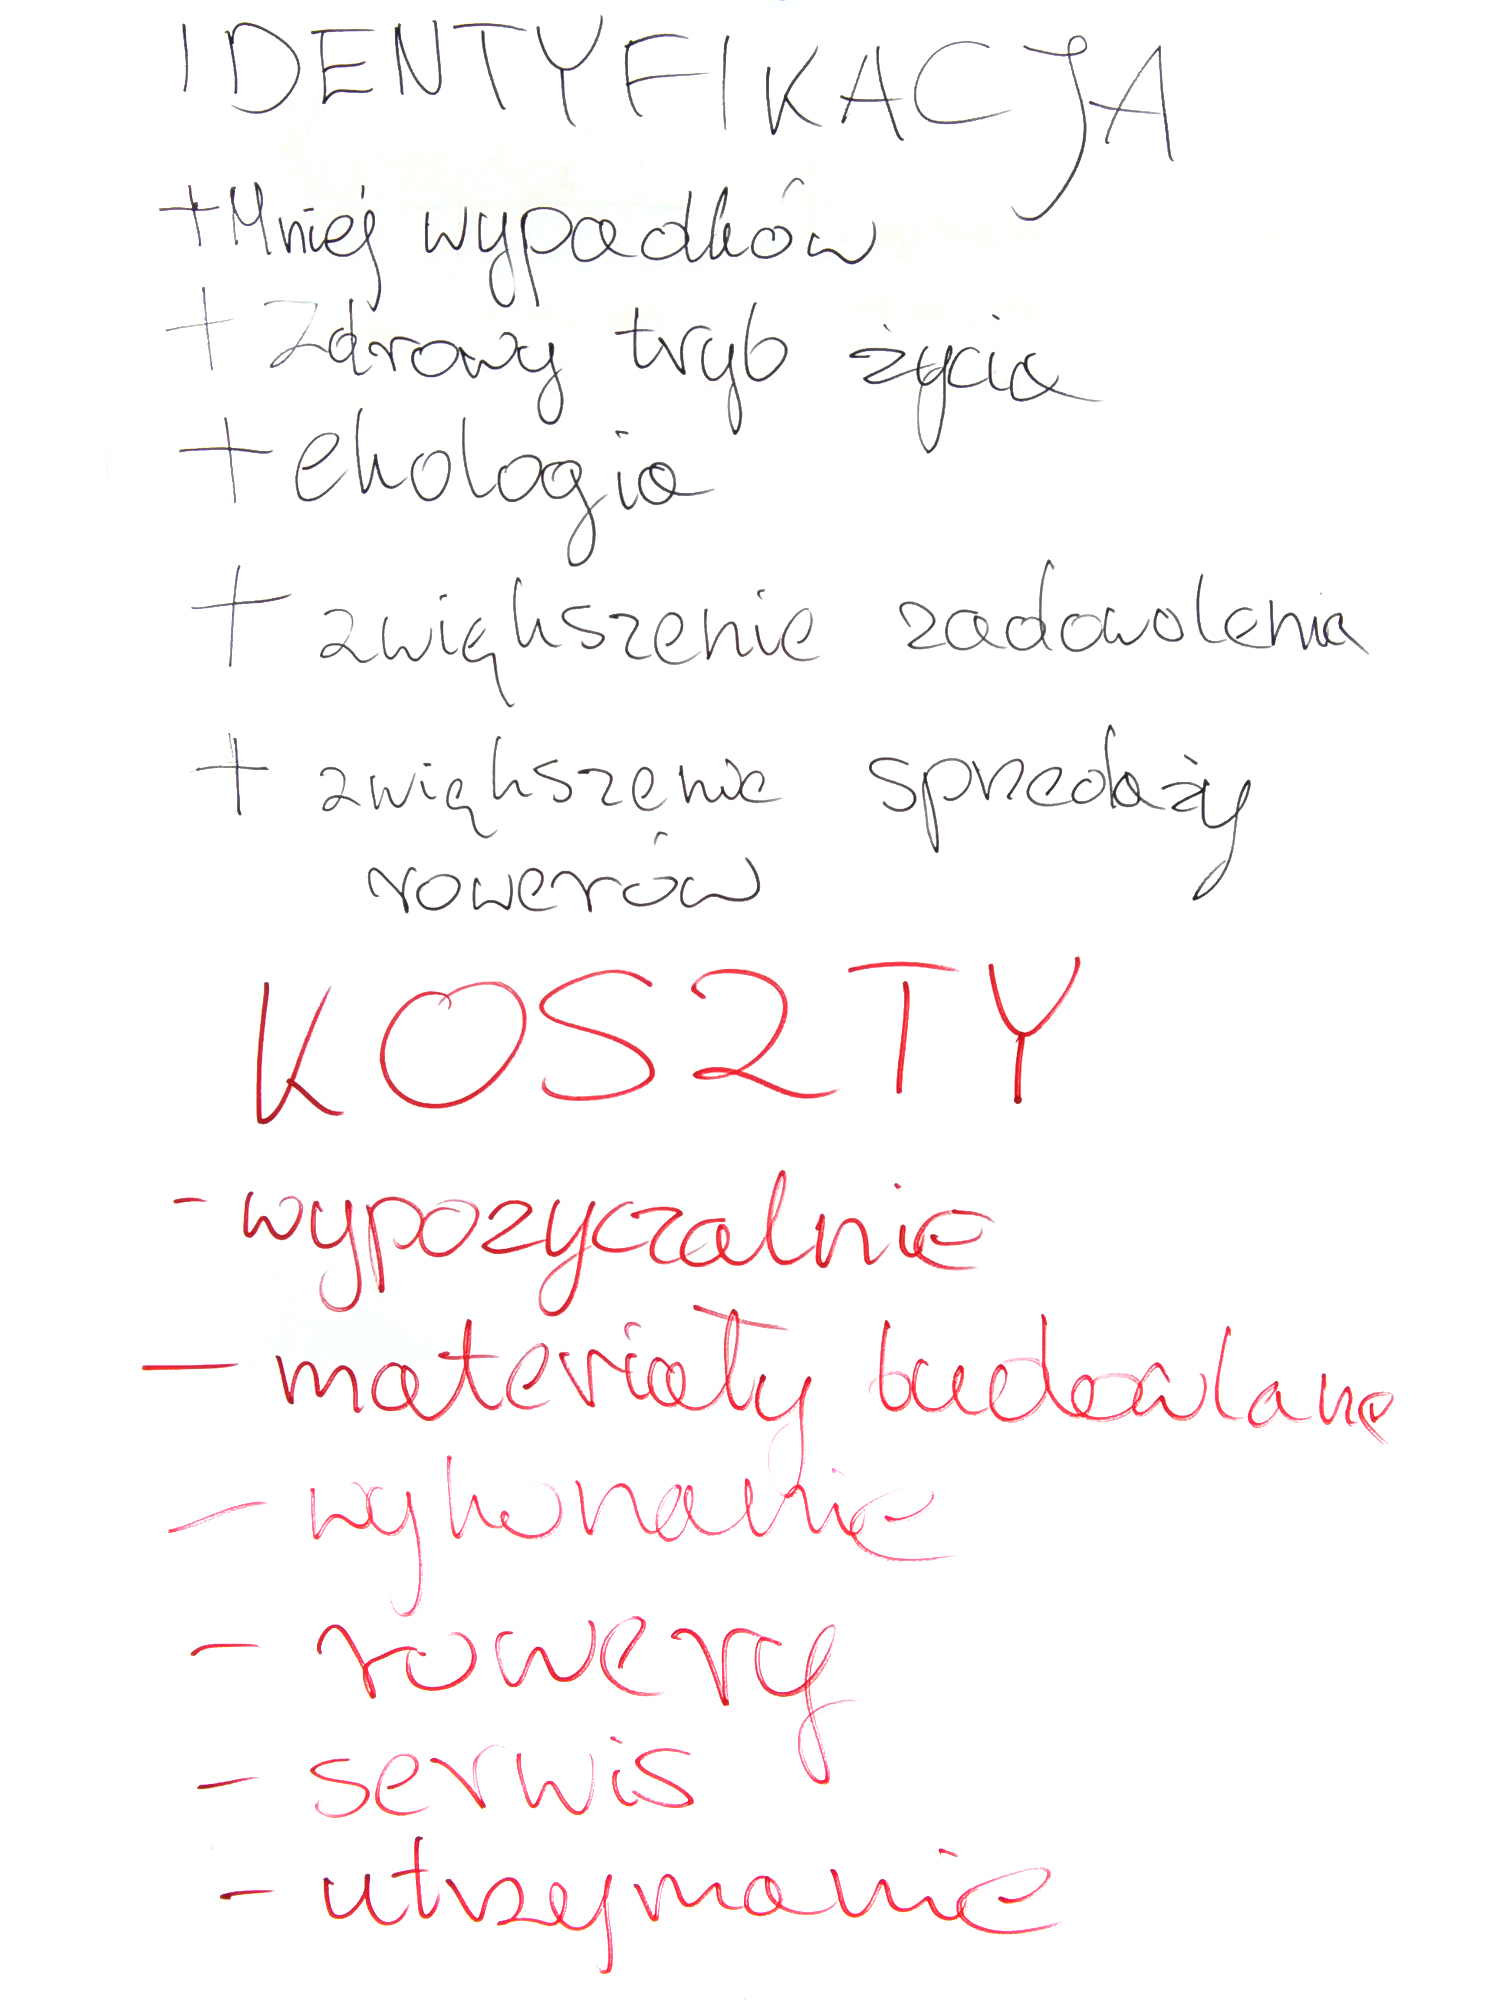 IDENTYFIKACJA
+ Mniej wypadków
+ Zdrowy tryb życia
+ ekologia
+ zwiększenie zadowolenia
+ zwiększenie sprzedaży
rowerów
KOSZTY
- wypozyczalnie
- materiały budowlane
- wykonanie
- rowery
- serwis
- utrzymanie